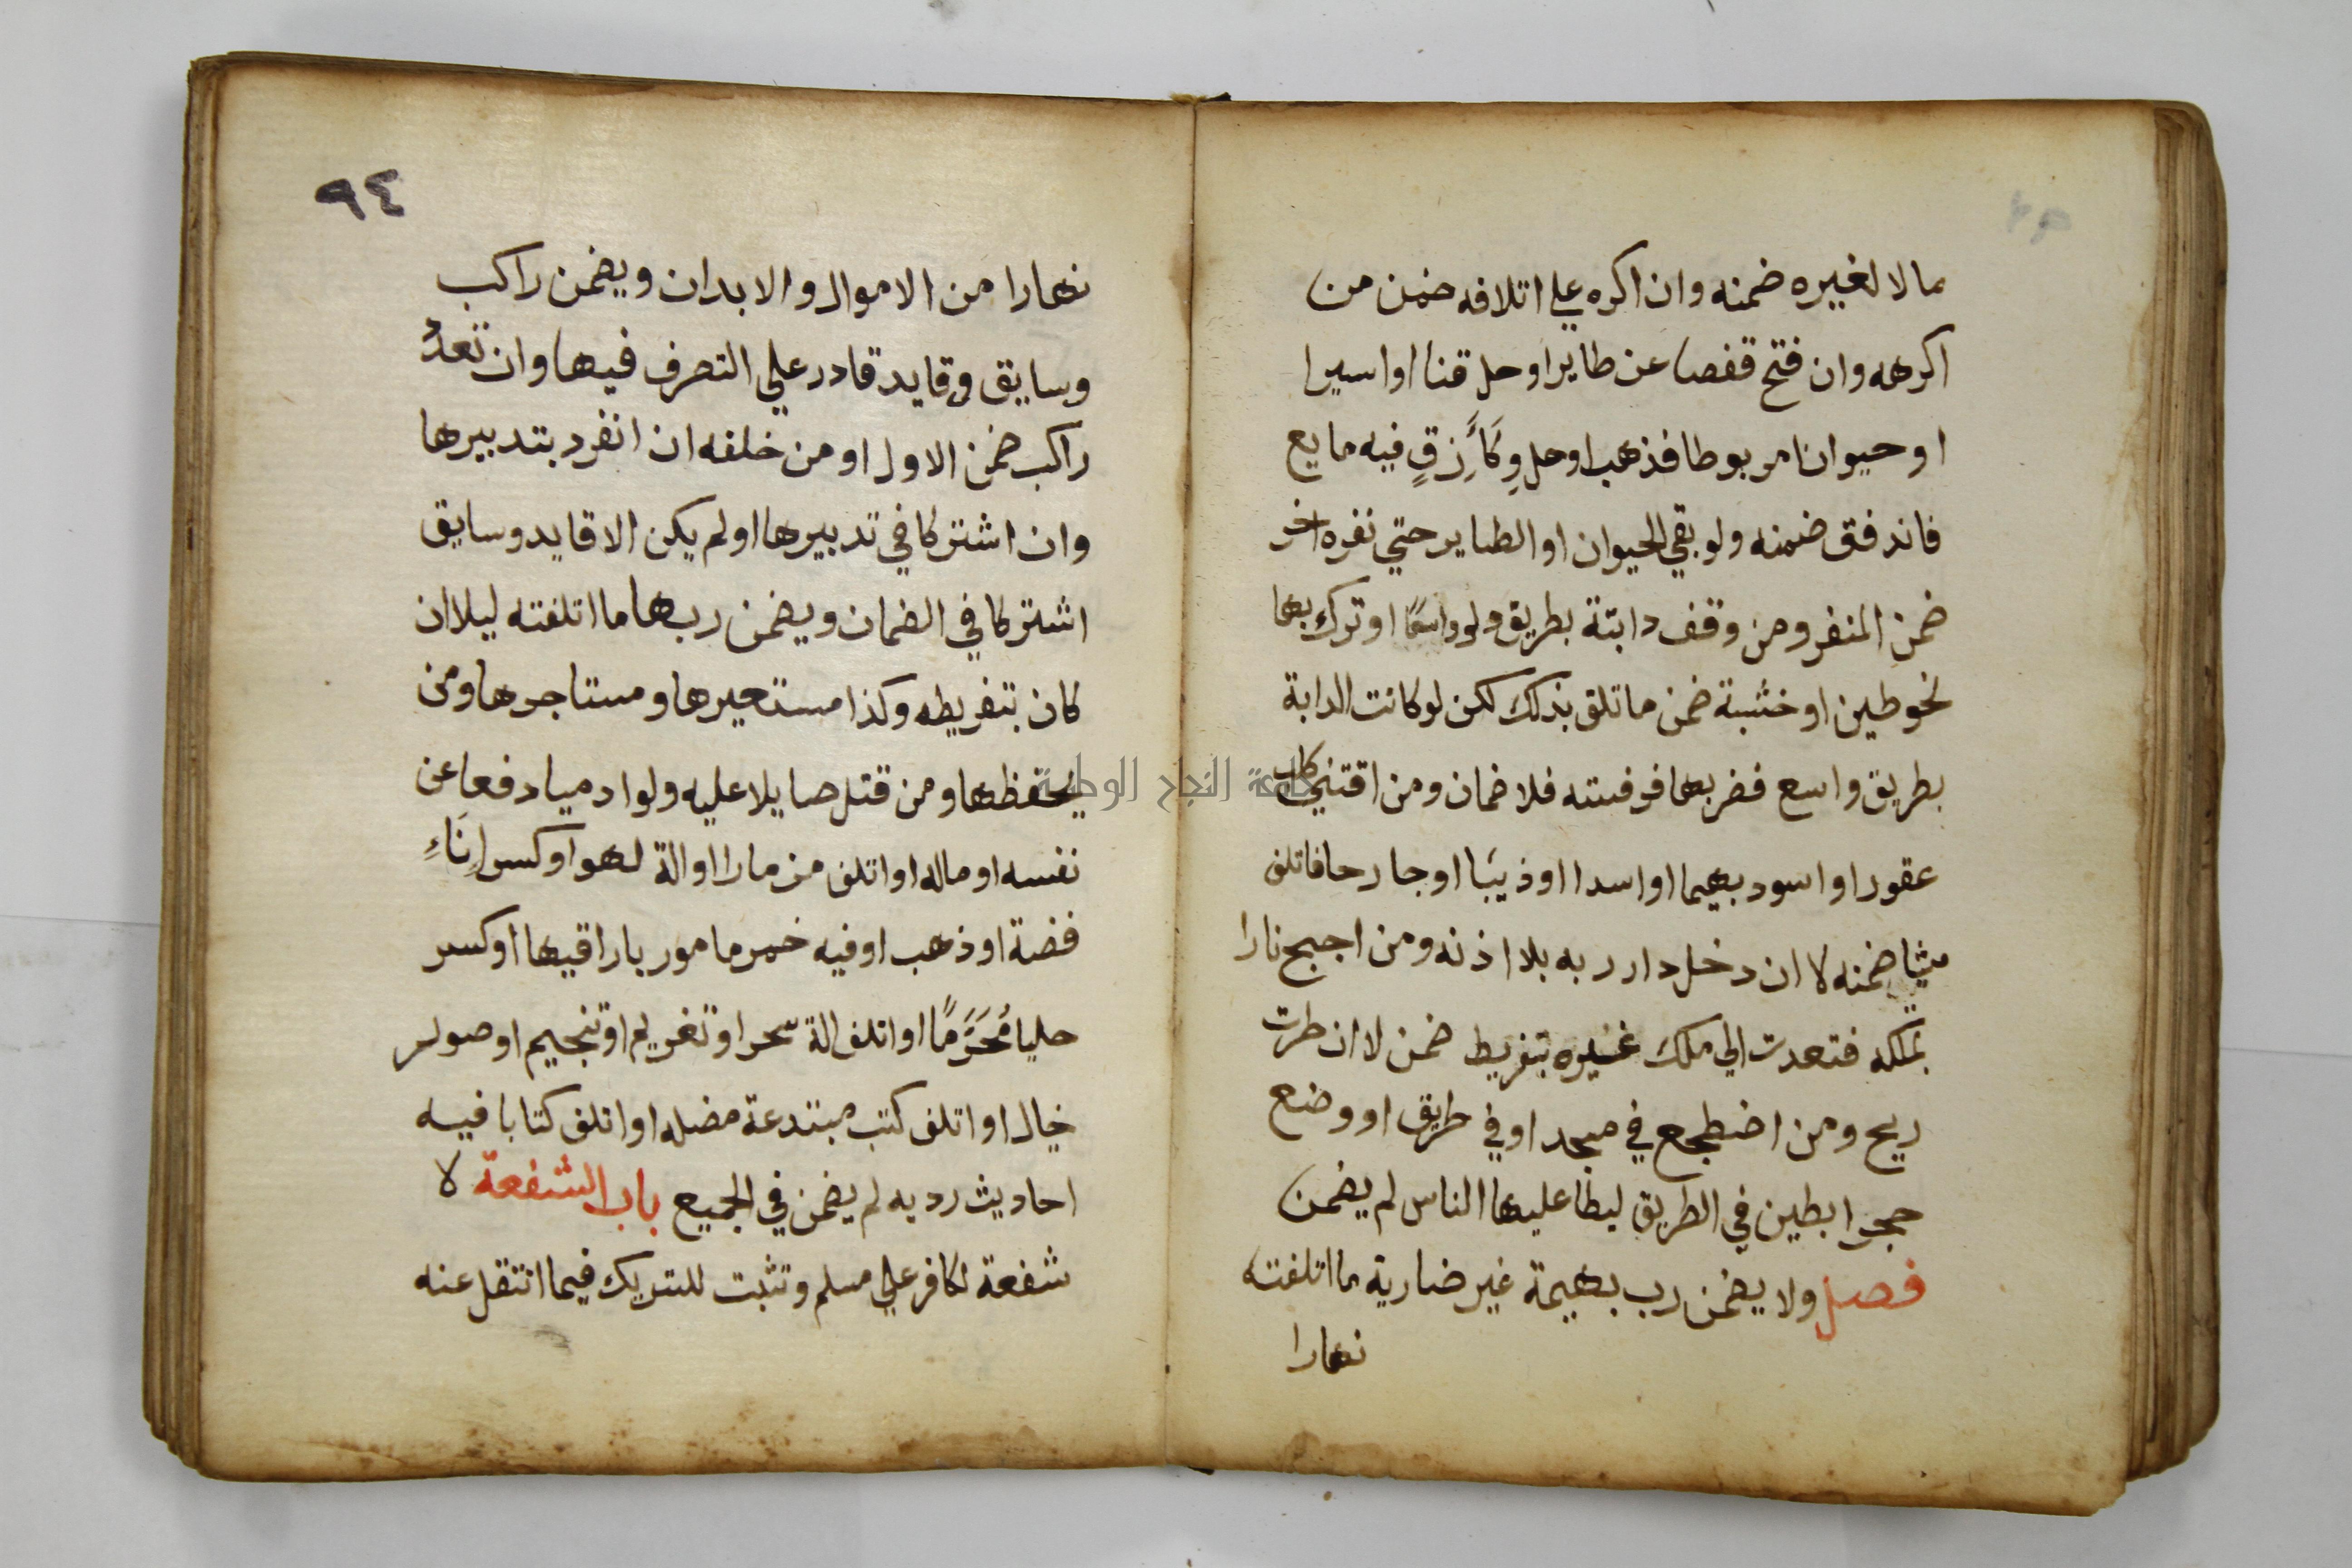 مالا لغيره ضمنه وان اكره علي اتلافه ضمن من
اكرهه وان فتح قفصا عن طاير او حل قنا او اسيرا
او حيوانا مربوطا فذهب او حل وِكَأَ زِقٍ فيه مايع
فاندفق ضمنه ولو بقي الحيوان او الطاير حتي نفره اخر
ضمن المنفر ومن وقف دابتة بطريق ولو واسعًا او ترك بها
نحو طين او خشبة ضمن ما تلف بذلك لكن لو كانت الدابة
بطريق واسع فضربها فرفسته فلا ضمان ومن اقتني كلب
عقورا او اسود بهيما او اسدا او ذيبا او جارحا فاتلف
شيا ضمنه لا ان دخل دار ربه بلا اذنه ومن اجج نارا
بملكه فتعدت الي ملك غيره بتفريط ضمن لا ان طرت
ريح ومن اضطجع في مسجد او في طريق او وضع
حجرا بطين في الطريق ليطا عليها الناس لم يضمن
فصل ولا يضمن رب بهيمة غير ضارية ما اتلفته
نهارا
٩٤
نهارا من الاموال والابدان ويضمن راكب
وسايق وقايد قادر علي التصرف فيها وان تعدد
راكب ضمن الاول او من خلفه ان انفرد بتدبيرها
وان اشتركا في تدبيرها او لم يكن الا قايد وسايق
اشتركا في الضمان ويضمن ربها ما اتلفته ليلا ان
كان بتفريطه وكذا مستعيرها ومستاجرها ومن
يحفظها ومن قتل صايلا عليه ولو ادميا دفعا عن
نفسه او ماله او اتلف مزمارا او الة لهو او كسر اِنَاءِ
فضة او ذهب او فيه خمر مامور باراقيها او كسر
حليا مُحَرَّمًا او اتلف الة سحر او تغريم او تنجيم او صور
خيال او اتلف كتب مبتدعة مضله او اتلف كتابا فيه
احاديث رديه لم يضمن في الجميع باب الشفعة لا
شفعة لكافر علي مسلم وتثبت للشريك فيما انتقل عنه
جامعة النجاح الوطنية